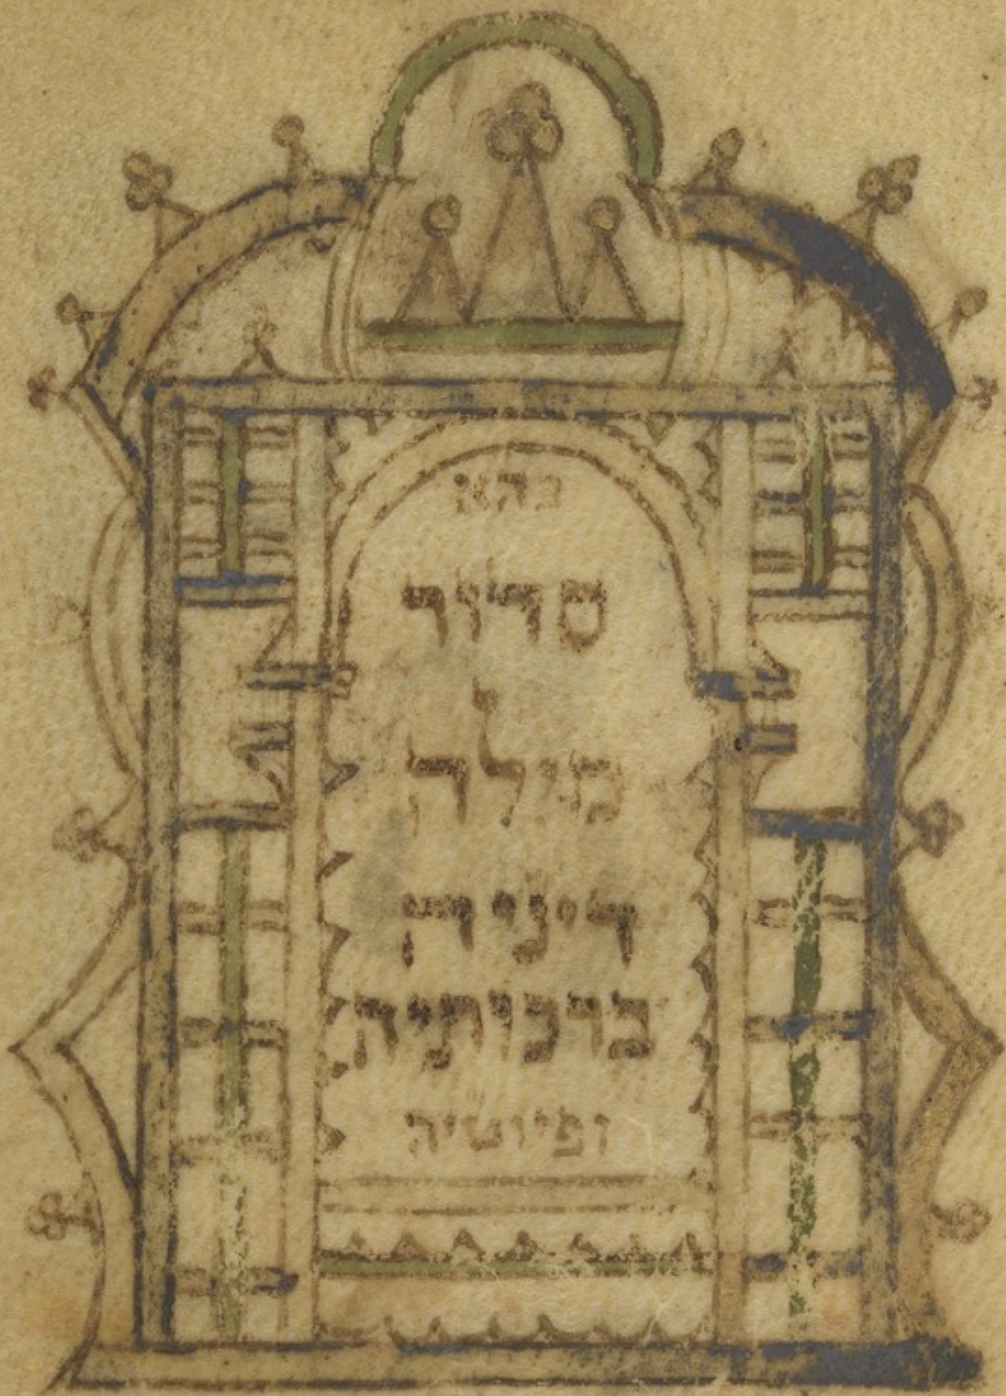 בהא
סדור
מילה
דיניה
ברכותיה
ופיוטיה